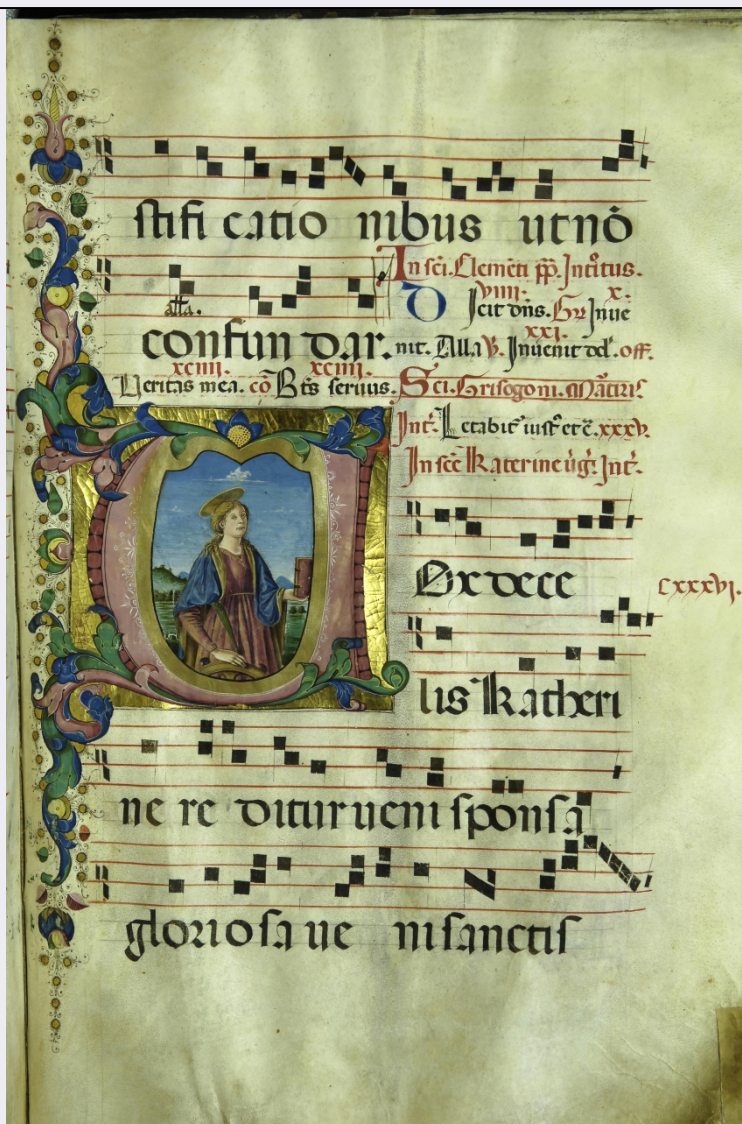 stifi catio nibus ut nō
In sc̄i. Clemēti pp̄. Introitus.
viiii. x.
Dicit dns. Gr̄ Inue
alła.
confun dar. nit. Alla. V. Inuenit dd. off.
xxi.
xciiii. xciiii.
Ueritas mea. cō Bt̄s seruus. Sci. Grisogoni. Mārtiris
Int. Letabit iust et c̄. xxxv.
In sc̄e Katerine ūg. Int.
Ox vece
cxxxvi.
lis Katheri
ne re ditur ueni sponsa
gloriosa ue ni sanctis